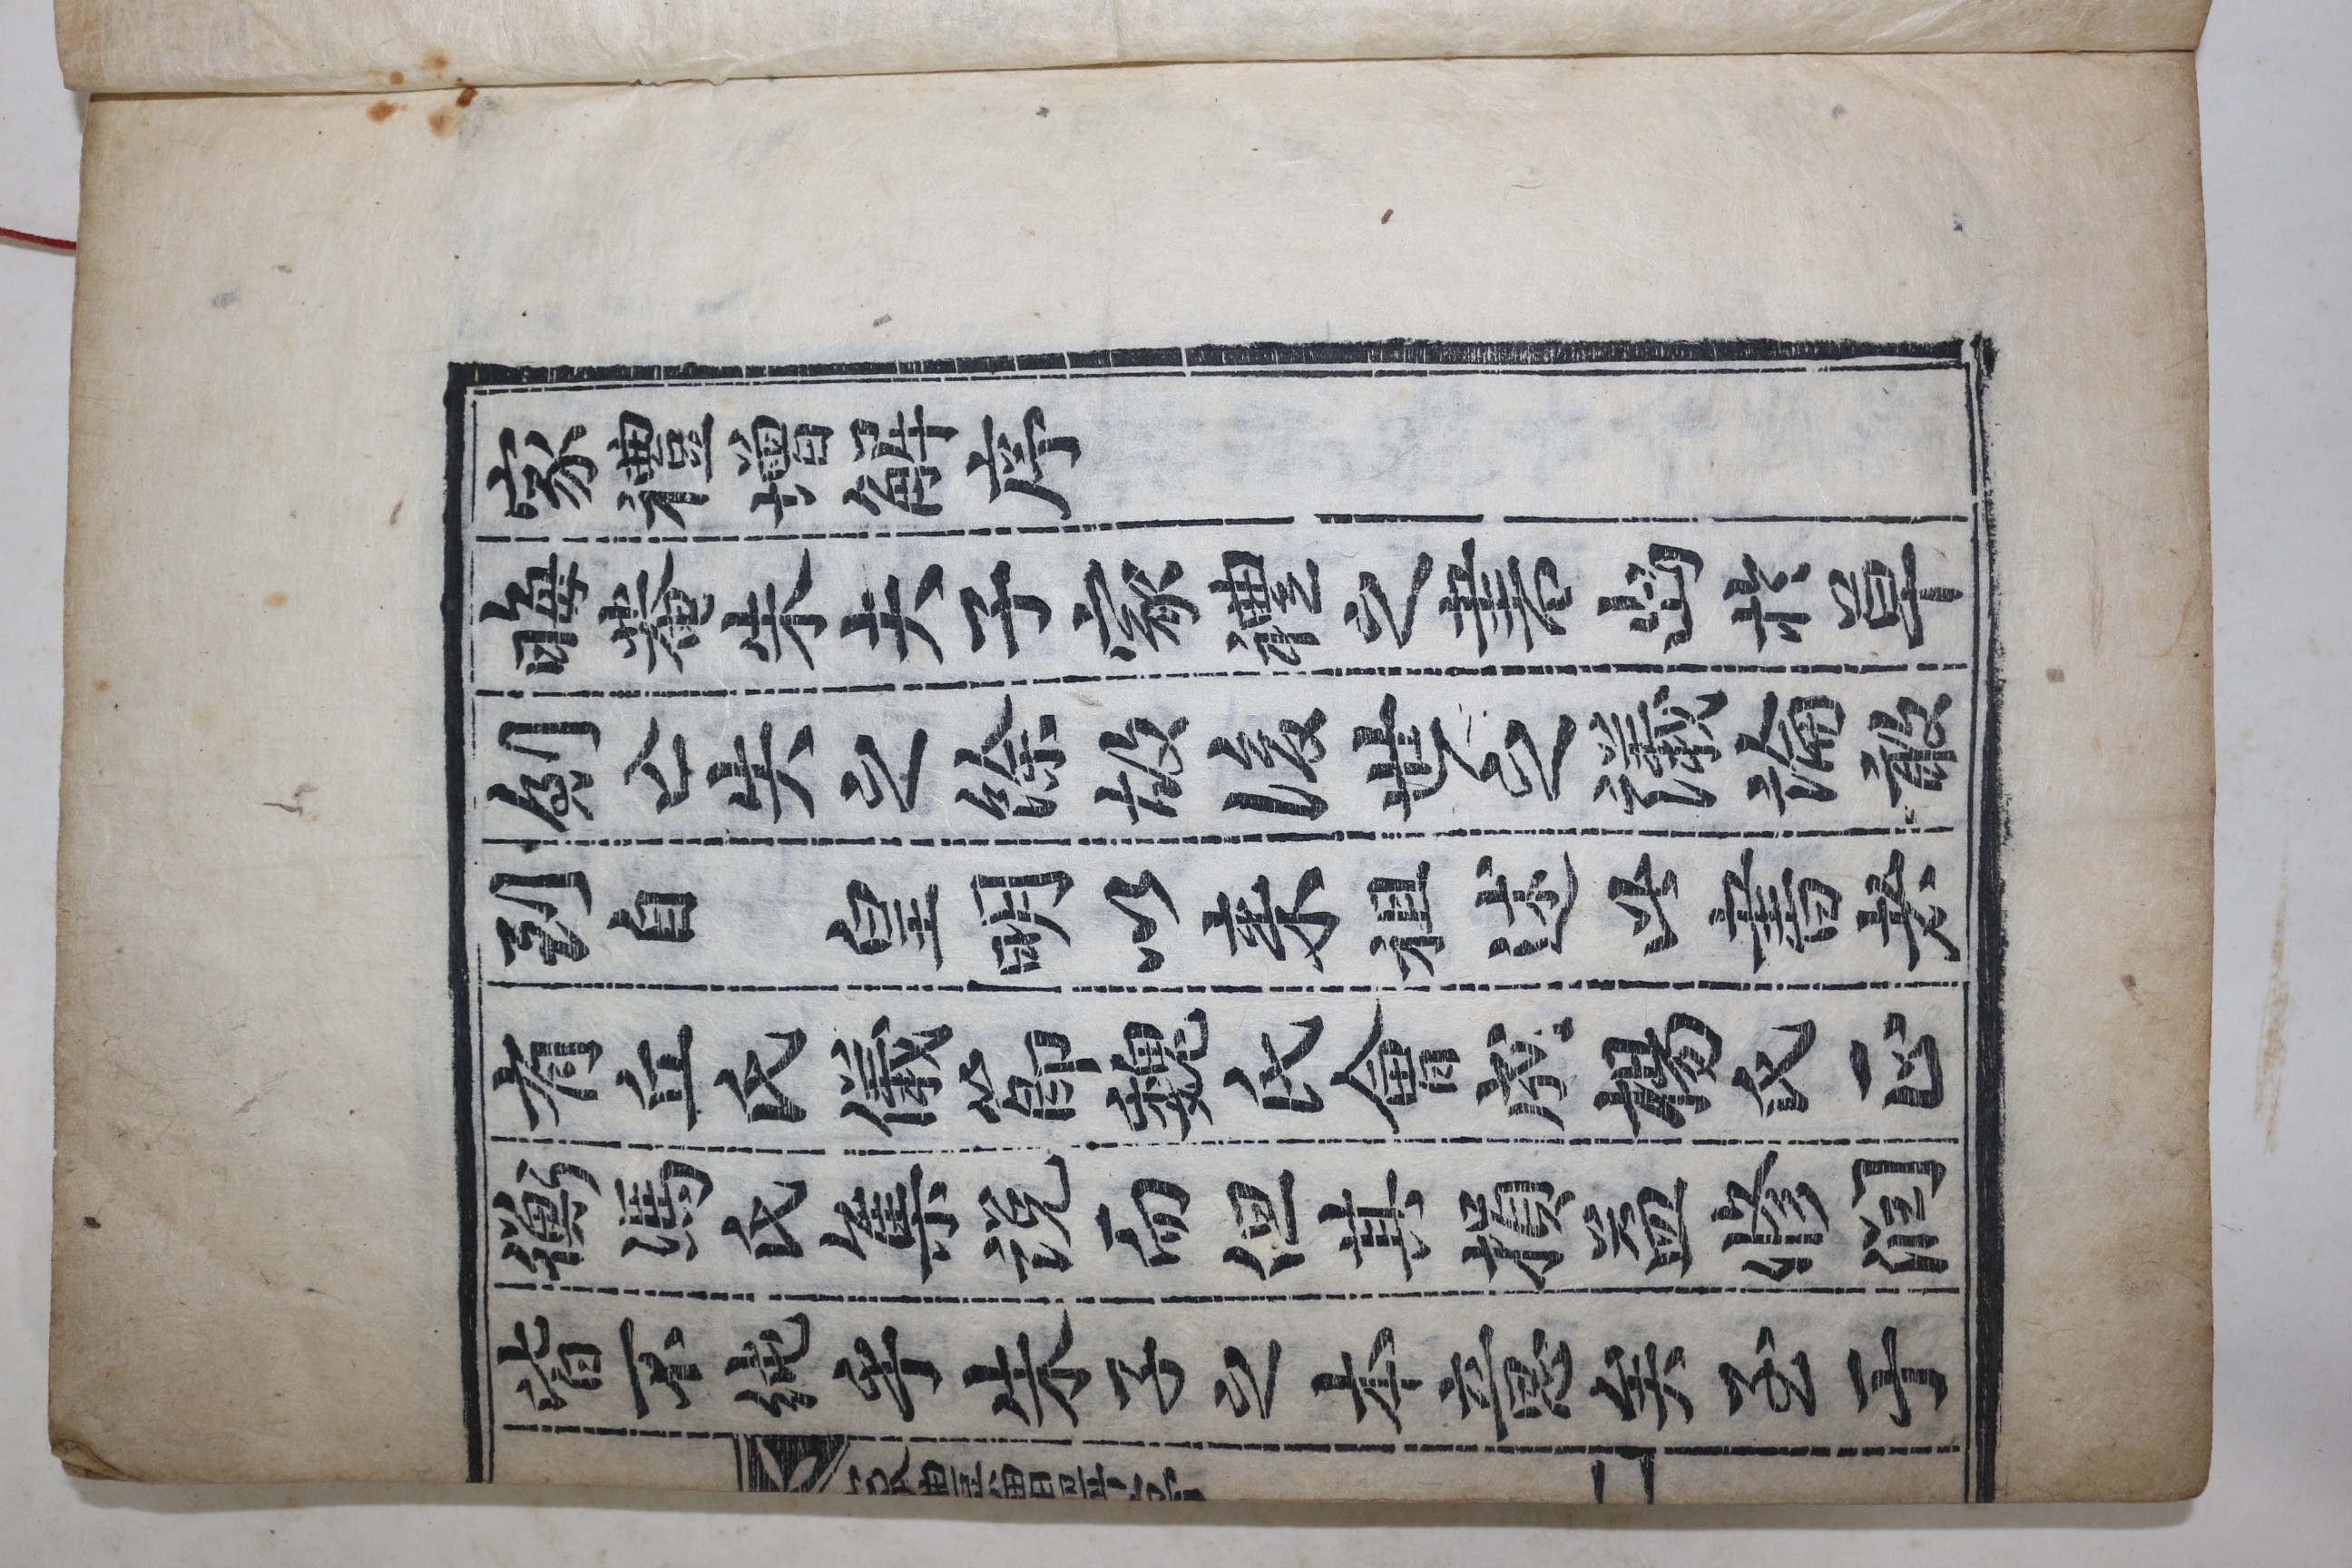 家禮增解序
晦菴朱夫子家禮之書出於草
創亾失之餘故後世之議論敢
到自 皇明以来祖述此書者
有丘氏儀節魏氏會成楊氏正
衡馮氏集說而但其損益修潤
皆不純乎朱子之本意矣至于
家禮增解序